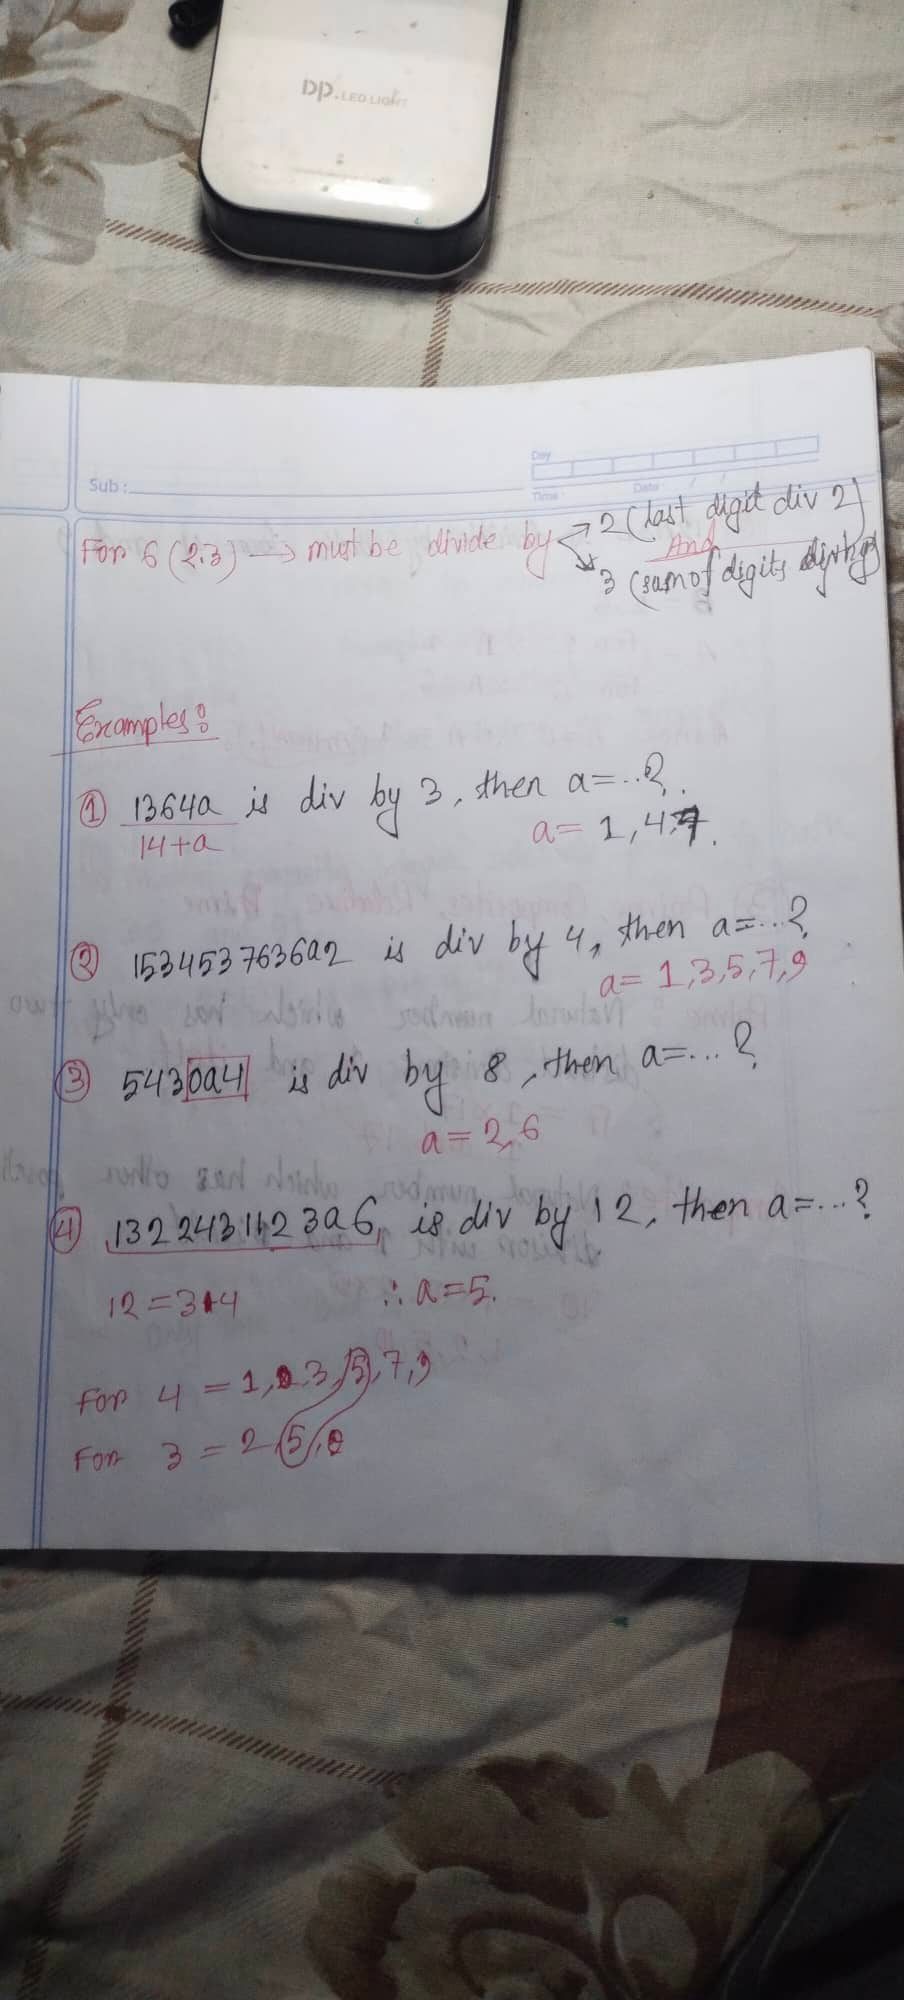 DP. LED LIGHT
Day
Sub :
Time :
Date :
For 6 (2.3) → must be divide by → 2 (last digit div 2)
And
→ 3 (sum of digits
Examples:
① 1364a is div by 3, then a=...?
14+a
a= 1,4,7.
② 1534537636a2 is div by 4, then a=...?
a= 1,3,5,7,9
③ 5430a4 is div by 8, then a=...?
a=2,6
④ 132243112 3a6, is div by 12, then a=...?
12=3*4
∴ a=5.
For 4 = 1, 3, 5, 7, 9
For 3 = 2, 5,